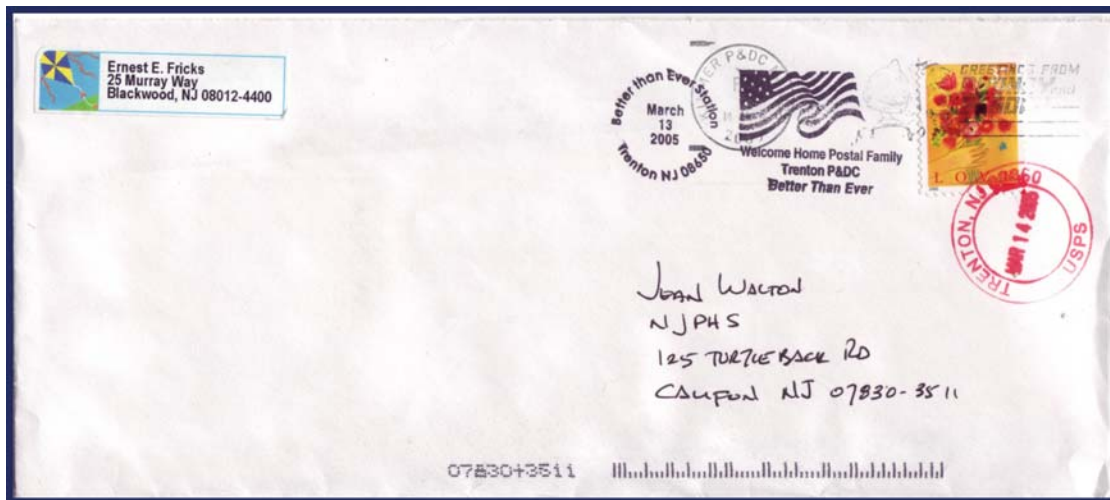 Ernest E. Fricks
25 Murray Way
Blackwood, NJ 08012-4400
Better than Ever Station
March
13
2005
Trenton NJ 08650
ER P&DC
Welcome Home Postal Family
Trenton P&DC
Better Than Ever
GREETINGS FROM
TRENTON, NJ
MAR 14 2005
USPS
JEAN WALTON
NJPHS
125 TURTLEBACK RD
CALIFON NJ 07830-3511
07830+3511